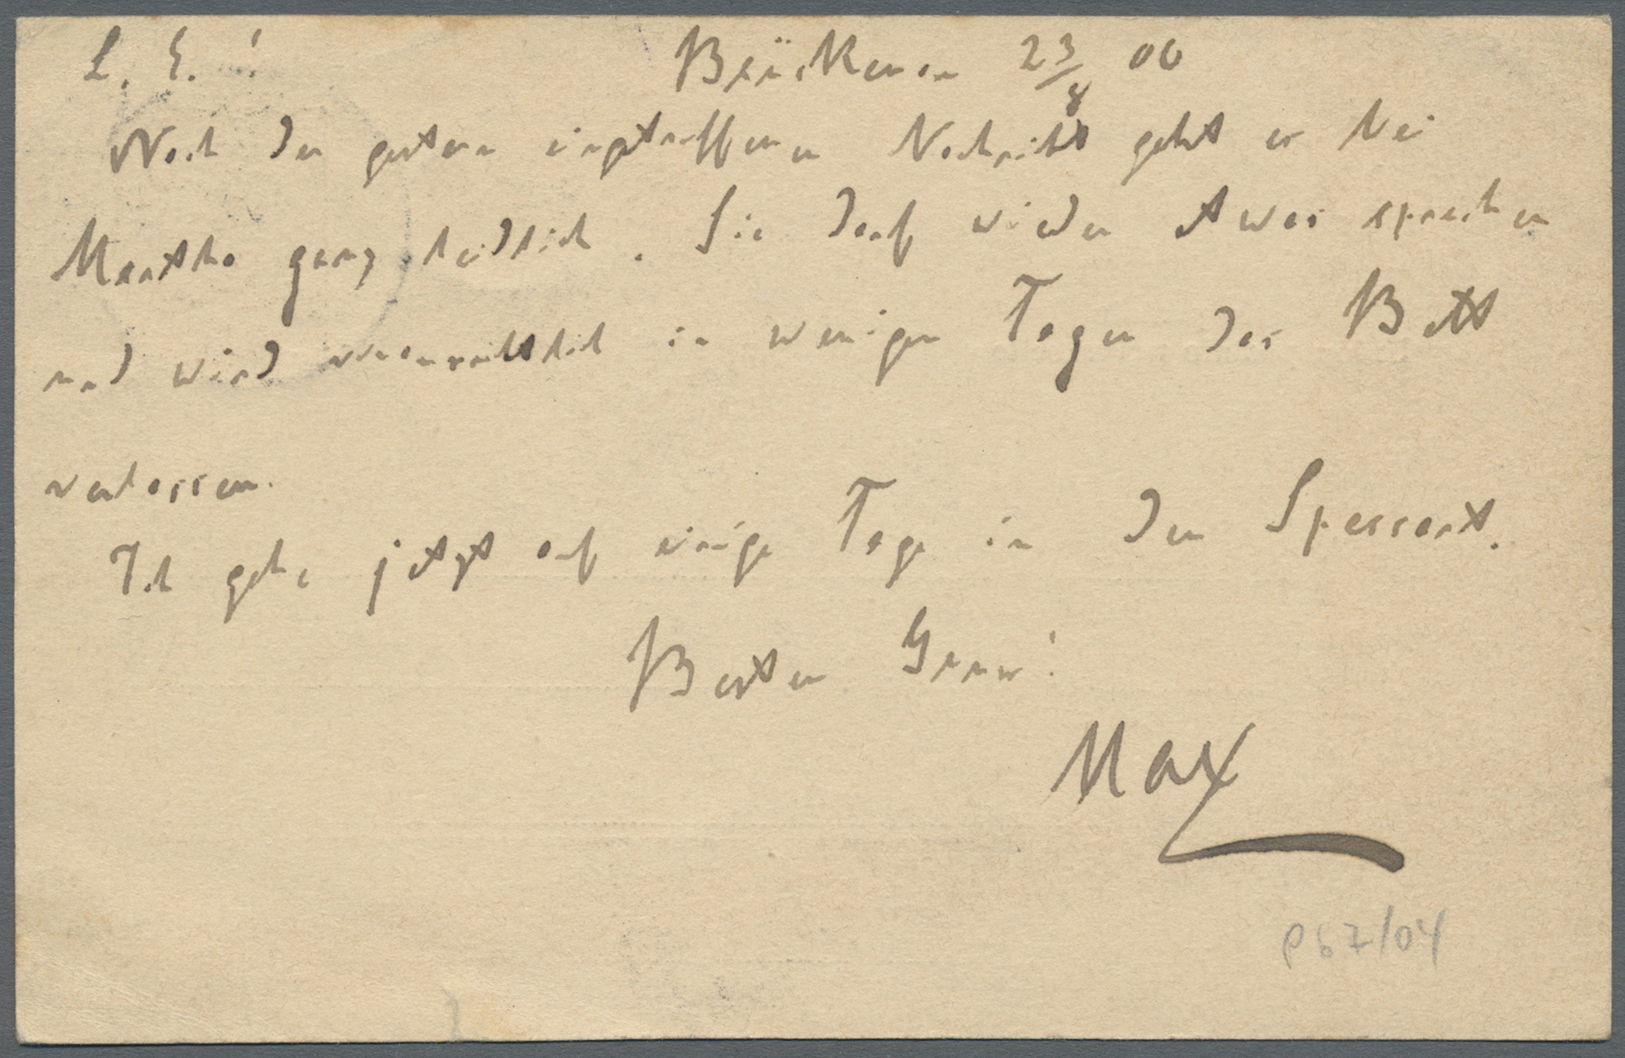 L. E.! Brückenau 23/8 00
Nach der gestern eingetroffenen Nachricht geht es bei
Martha ganz leidlich. Sie darf wieder etwas sprechen
und wird vermuthlich in wenigen Tagen das Bett
verlassen.
Ich gehe jetzt auf einige Tage in den Spessart.
Besten Gruss!
Max
P67/04